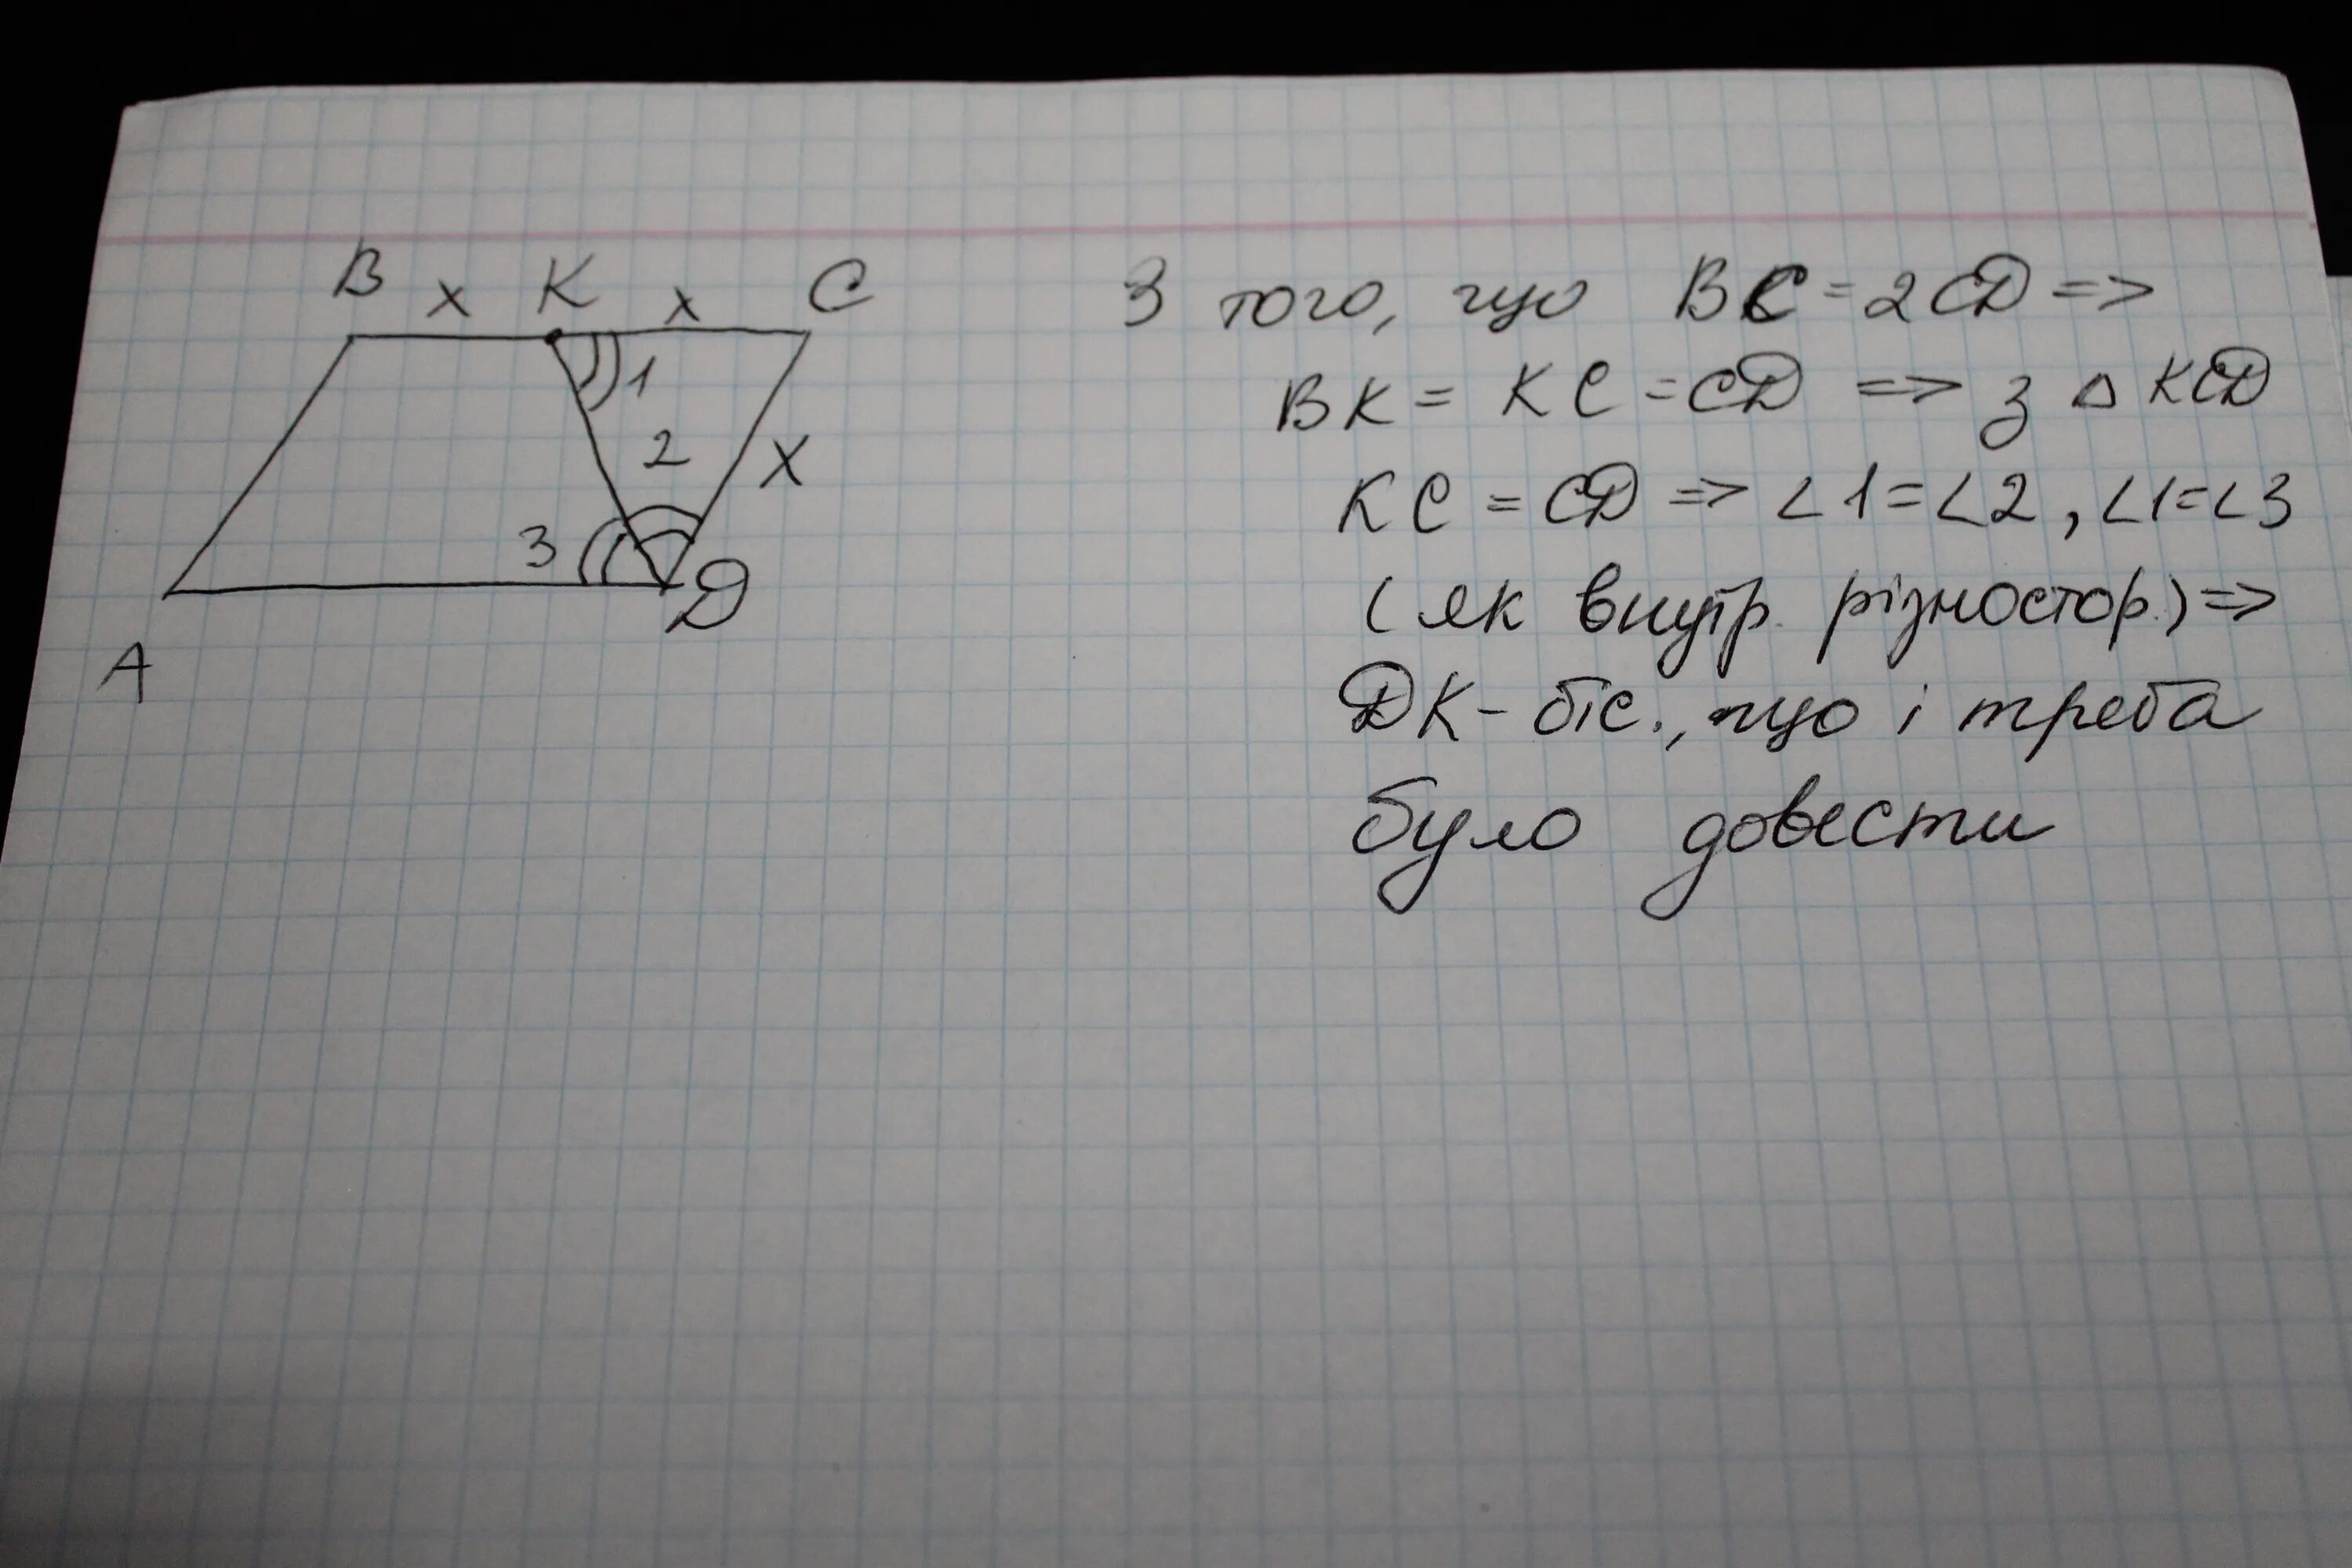 B x K x C
1
2 x
3 D
A
З того, що BC = 2CD =>
BK = KC = CD => з △ KCD
KC = CD => ∠1=∠2, ∠1=∠3
(як внутр. різностор.) =>
DK - біс., що і треба
було довести